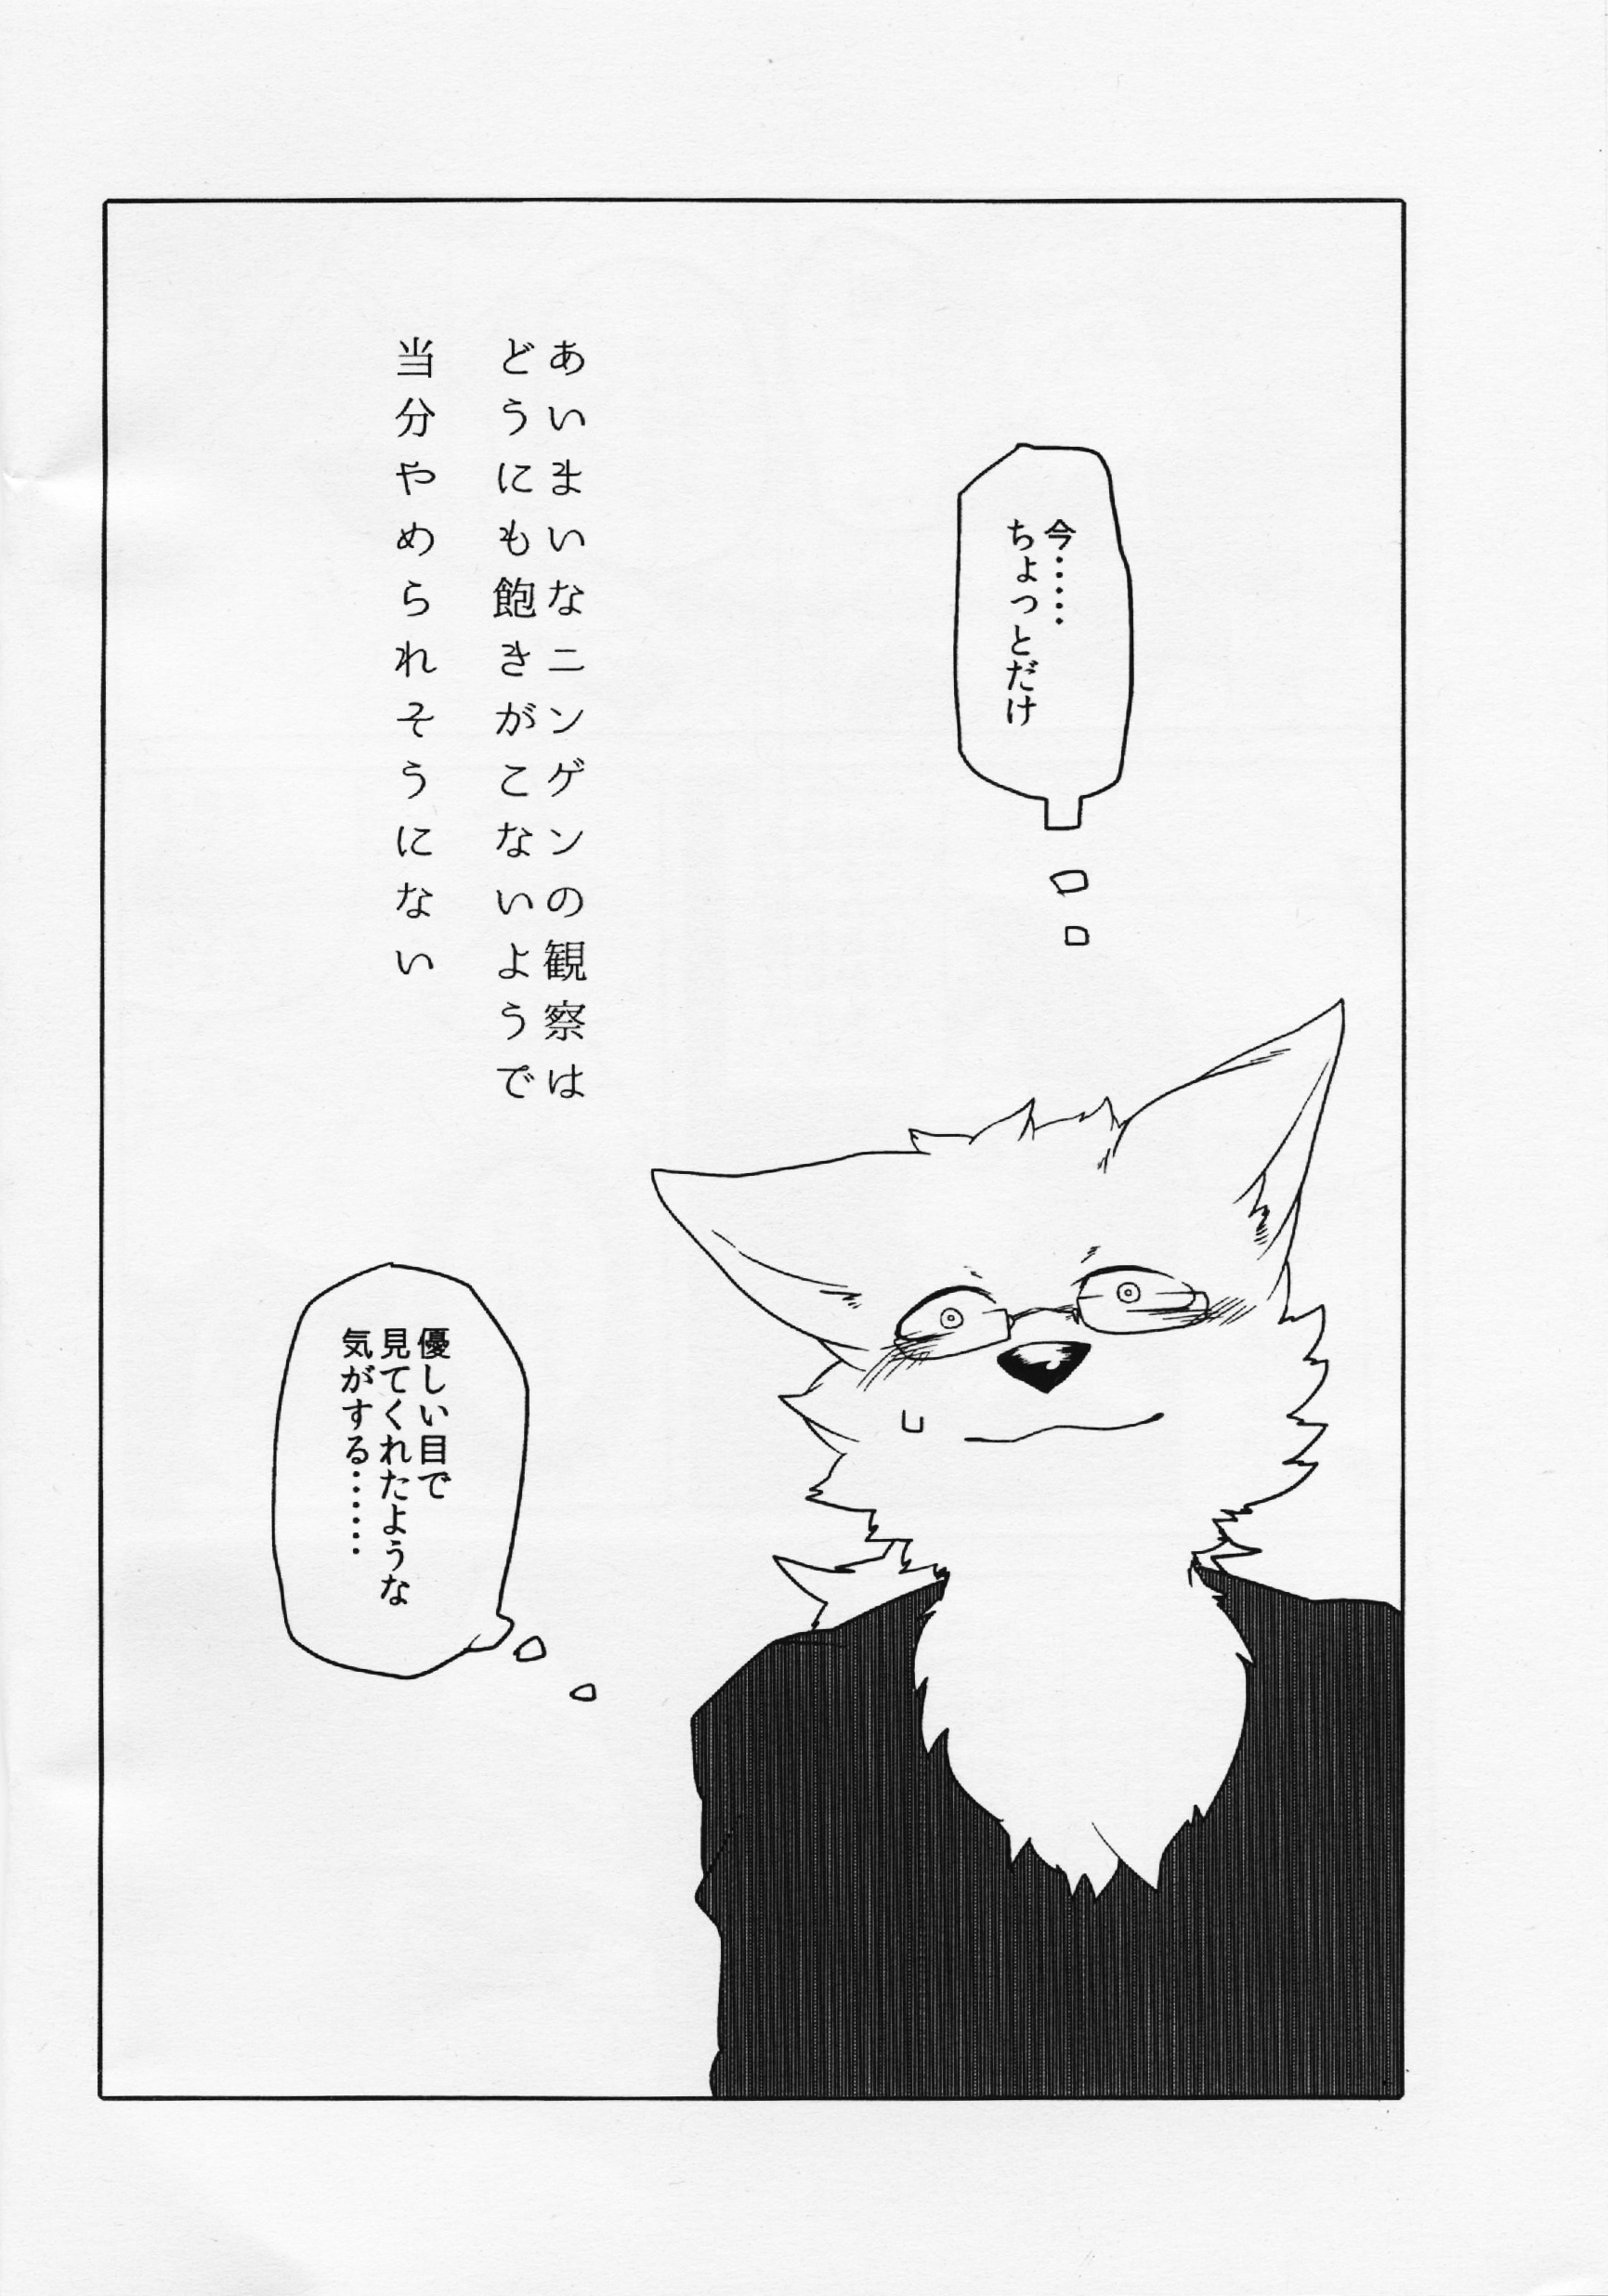 今……
ちょっとだけ
あいまいなニンゲンの観察は
どうにも飽きがこないようで
当分やめられそうにない
優しい目で
見てくれたような
気がする……